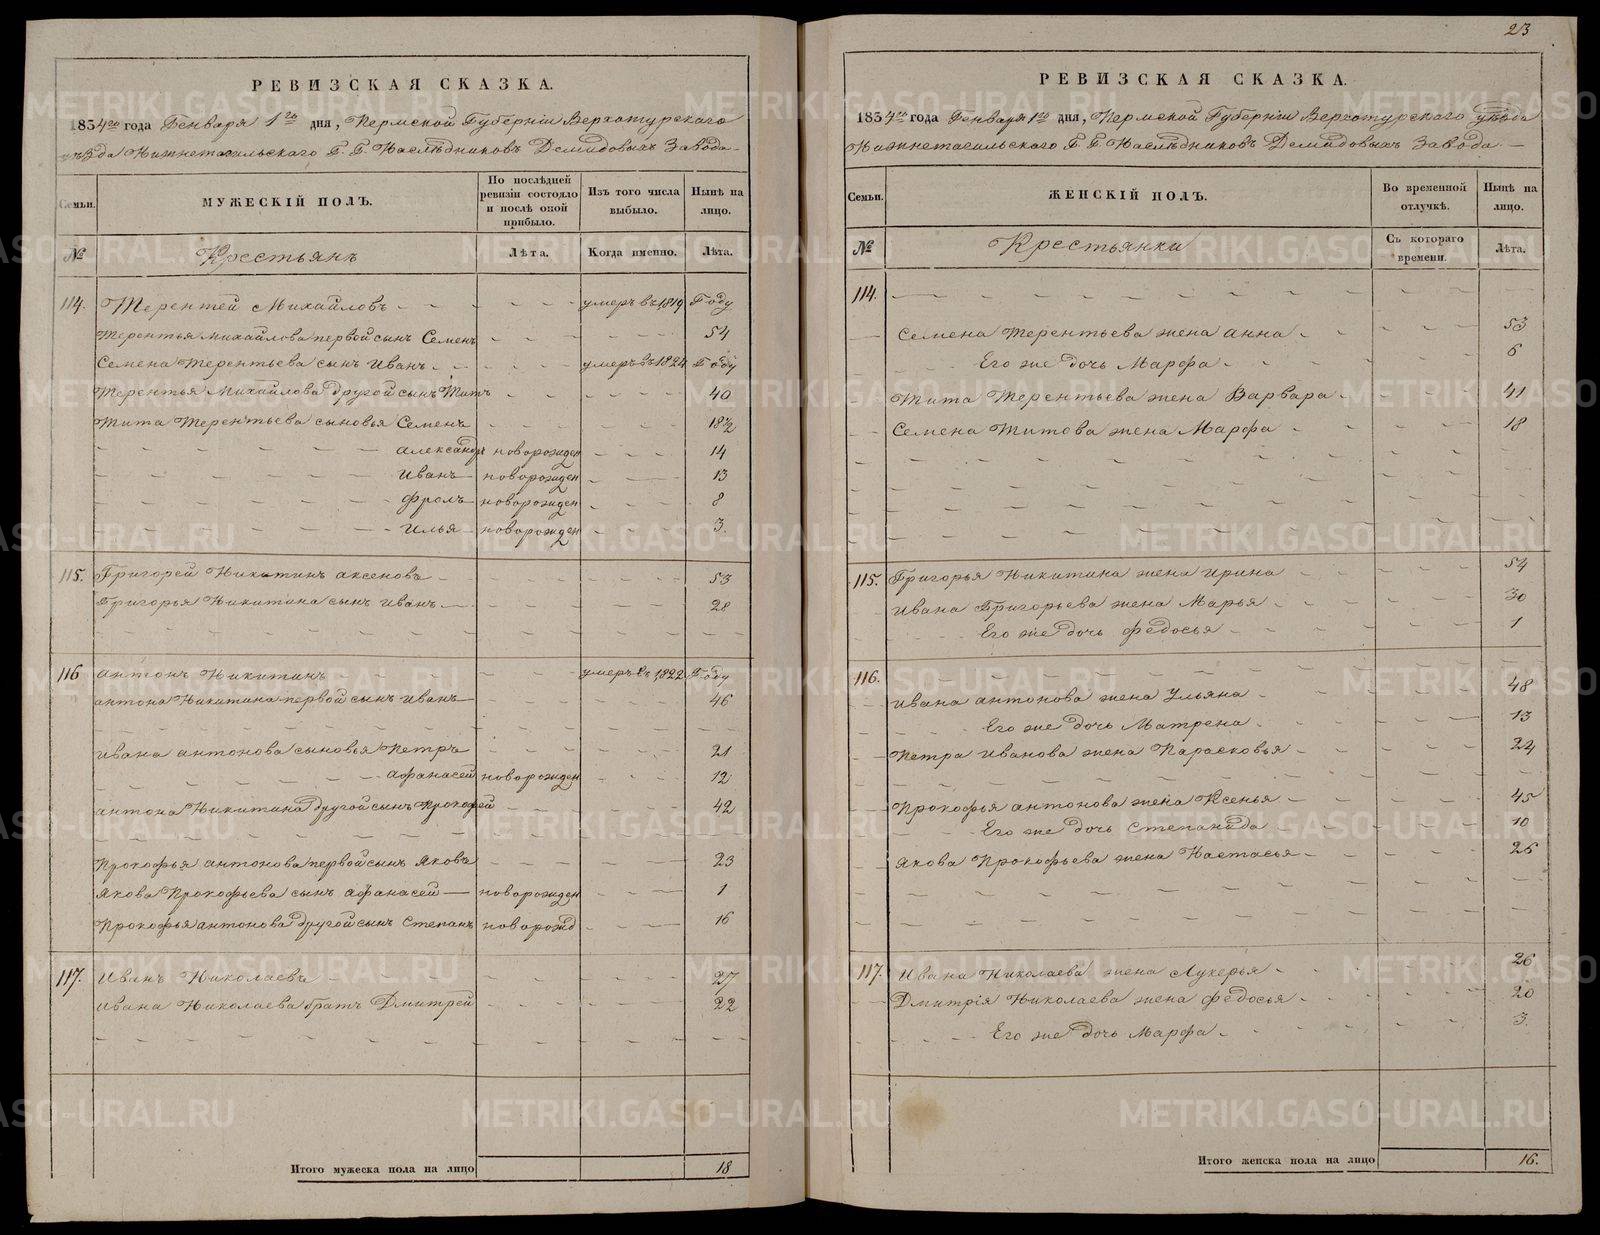 РЕВИЗСКАЯ СКАЗКА.
1834го года Генваря 1го дня, Пермской Губернiи Верхотурскаго
уѣзда Нижнетагильскаго Г. Г. Наслѣдниковъ Демидовыхъ Завода
Семьи.
МУЖЕСКIЙ ПОЛЪ.
По послѣдней ревизiи состояло и послѣ оной прибыло.
Изъ того числа выбыло.
Нынѣ на лицо.
№
Крестьянъ
Лѣта.
Когда именно.
Лѣта.
114. Терентей Михайловъ умеръ въ 1819 Году
Терентья Михайлова первой сынъ Семенъ 54
Семена Терентьева сынъ Иванъ умеръ въ 1824 Году
Терентья Михайлова другой сынъ Титъ 40
Тита Терентьева сыновья Семенъ 18½
Александръ новорожден 14
Иванъ новорожден 13
Фролъ новорожден 8
Илья новорожден 3.
115. Григорей Никитинъ Аксеновъ 53
Григорья Никитина сынъ Иванъ 28
116 Антонъ Никитинъ умеръ въ 1822 Году
Антона Никитина первой сынъ Иванъ 46
Ивана Антонова сыновья Петръ 21
Афанасей новорожден 12
Антона Никитина другой сынъ Прокофей 42
Прокофья Антонова первой сынъ Яковъ 23
Якова Прокофьева сынъ Афанасей новорожден 1
Прокофья Антонова другой сынъ Степанъ новорожд 16
117. Иванъ Николаевъ 27
Ивана Николаева братъ Дмитрей 22
Итого мужеска пола на лицо 18
23
РЕВИЗСКАЯ СКАЗКА.
1834го года Генваря 1го дня, Пермской Губернiи Верхотурскаго уѣзда
Нижнетагильскаго Г. Г. Наслѣдниковъ Демидовыхъ Завода.
Семьи.
ЖЕНСКIЙ ПОЛЪ.
Во временной отлучкѣ.
Нынѣ на лицо.
№
Крестьянки
Съ котораго времени.
Лѣта.
114.
Семена Терентьева жена Анна 53
Его же дочь Марфа 6
Тита Терентьева жена Варвара 41
Семена Титова жена Марфа 18
115. Григорья Никитина жена Ирина 54
Ивана Григорьева жена Марья 30
Его же дочь Федосья 1
116.
Ивана Антонова жена Ульяна 48
Его же дочь Матрена 13
Петра Иванова жена Парасковья 24
Прокофья Антонова жена Ксенья 45
Его же дочь Степанида 10
Якова Прокофьева жена Настасья 26
117. Ивана Николаева жена Лукерья 26
Дмитрiя Николаева жена Федосья 20
Его же дочь Марфа 3.
Итого женска пола на лицо 16.
METRIKI.GASO-URAL.RU